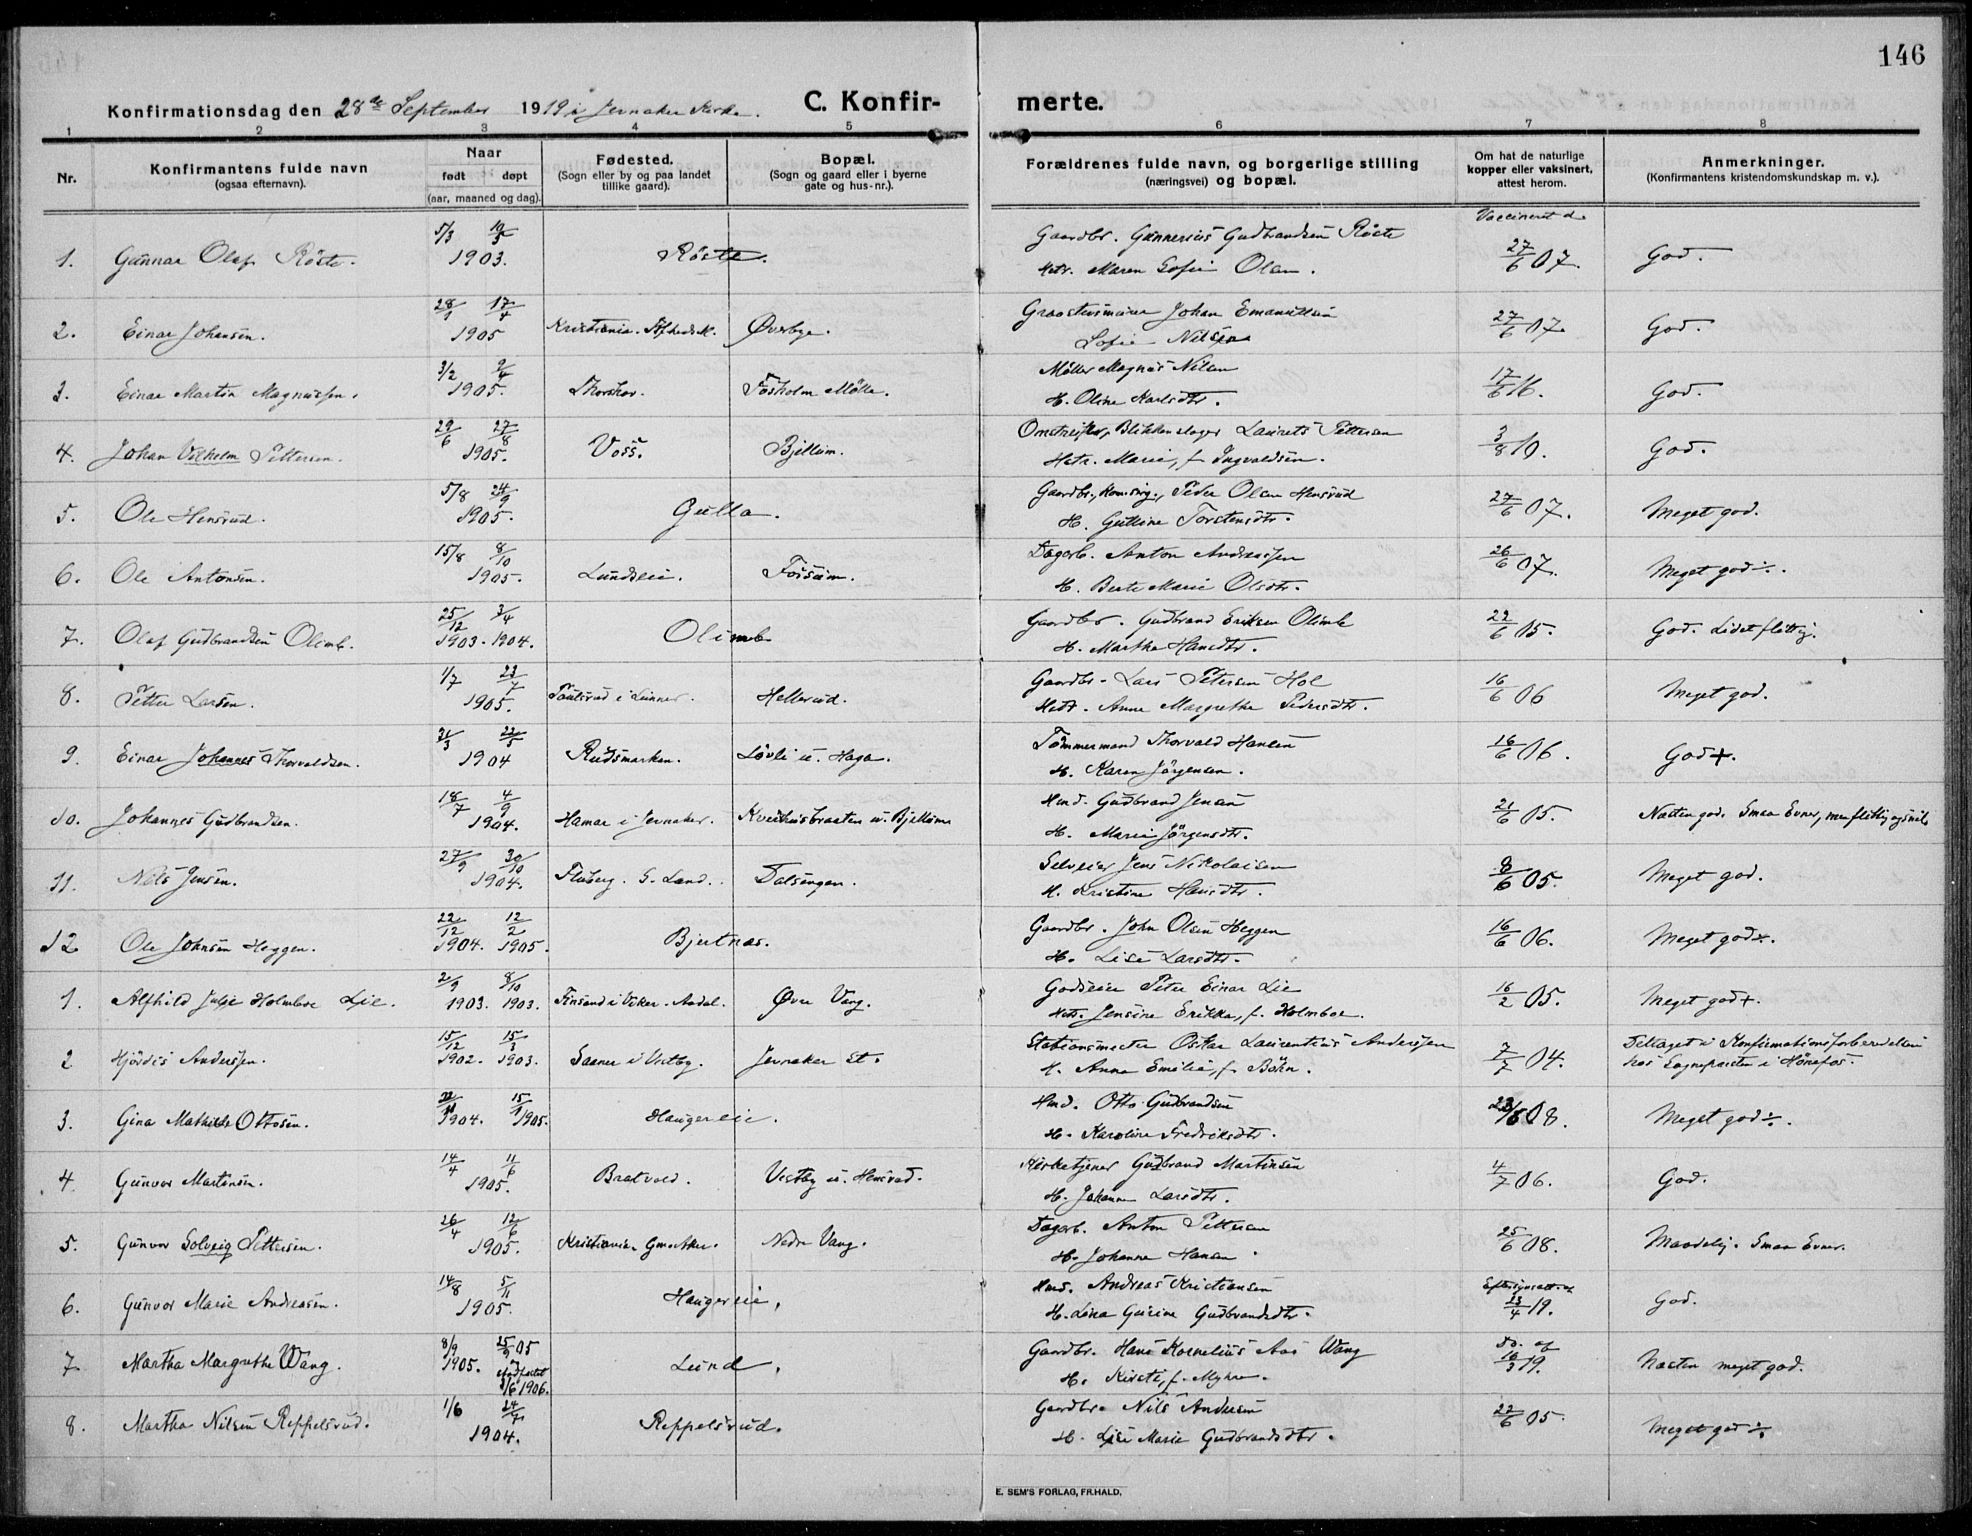 146
Konfirmationsdag den 28de September 1919 i Jevnaker Kirke. C. Konfir- merte.
1 2 3 4 5 6 7 8
Nr. Konfirmantens fulde navn (ogsaa efternavn). Naar født døpt (aar, maaned og dag). Fødested. (Sogn eller by og paa landet tillike gaard). Bopæl. (Sogn og gaard eller i byerne gate og hus-nr.). Forældrenes fulde navn, og borgerlige stilling (næringsvei) og bopæl. Om hat de naturlige kopper eller vaksinert, attest herom. Anmerkninger. (Konfirmantens kristendomskundskap m. v.).
Vaccineret d.
1. Gunnar Olaf Røste. 5/3 19/3 1903. Røste. Gaardbr. Gunnerius Gudbrandsen Røste 27/6 07. God.
Hstr. Maren Sofie Olsen.
2. Einar Johansen. 28/1 17/4 1905 Kristiania. Øverbye. Johan Emanuelsen 27/6 07. God.
Sofie Nilsen
3. Einar Martin Magnussen. 3/2 9/4 1905. Thorshov. Fosholm Mølle. Møller Magnus Nilsen 17/6 16. God.
H. Oline Karlsdtr.
4. Johan Vilhelm Pettersen. 29/6 27/8 1905. Voss. Bjellum. Omstreifer, Blikkenslager Laurets Pettersen 3/8 10. God.
Hstr. Marie, f. Ingvaldsen.
5. Ole Hensrud. 5/8 24/9 1905. Gulla. Gaardbr., Peder Olsen Hensrud 27/6 07. Meget god.
H. Guttine Torstensdtr.
6. Ole Antonsen. 15/8 8/10 1905. Lundseie. Fossum. Dagarb. Anton Andreassen 26/6 07. Meget god ÷.
H. Berte Marie Olsdtr.
7. Olaf Gudbrandsen Olimb. 25/12 3/4 1903. 1904. Olimb Gaardbr. Gudbrand Eriksen Olimb 22/6 05. God. Lidet flittig.
H. Marthe Hansdtr.
8. Petter Larsen. 1/7 23/7 1905. Paulsrud i Lunner. Hellerud. Gaardbr. Lars Petersen Hol 16/6 06 Meget god.
Hstr. Anne Margrethe Pedersdtr.
9. Einar Johannes Thorvaldsen. 31/3 22/5 1904 Rudsmarken. Løvli u. Haga. Tømmermand Thorvald Hansen 16/6 06. God +.
H. Karen Jørgensen.
10. Johannes Gudbrandsen. 18/7 4/9 1904. Hamar i Jevnaker. Kveihusbraaten u. Bjellum Hmd. Gudbrand Jensen 21/6 05. Næsten god. Smaa Evner, men flittig og snil.
H. Marie Jørgensdtr.
11. Nils Jensen. 27/9 30/10 1904. Fluberg. S. Land. Dalsengen. Selveier Jens Nikolaisen 8/6 05. Meget god.
H. Kristine Hansdtr.
12 Ole Johnsen Heggen. 22/12 12/2 1904. 1905. Bjertnæs. Gaardbr. John Olsen Heggen 16/6 06. Meget god ÷.
H. Lise Larsdtr.
1. Alfhild Julie Holmboe Lie. 2/9 8/10 1903. 1903. Finsand i Viker. Aadal. Øvre Vang. Godseier Peter Einar Lie 16/2 05. Meget god +.
Hstr. Jensine Erikka, f. Holmboe.
2 Hjørdis Anderssen. 15/12 15/3 1902. 1903. Saaner i Vestby. Jevnaker St. Stationsmester Oskar Laurentius Anderssen 7/7 04. Deltaget i Konfirmationsforberedelsen
H. Anna Emilie, f. Böhn. hos Sognepræsten i Hönefos.
3. Gina Mathilde Ottosen. 22/11 15/1 1904. 1905. Haugereie. Hmd. Otto Gudbrandsen 23/6 08. Meget god ÷.
H. Karoline Fredriksdtr.
4. Gunvor Martinsen. 14/4 11/6 1905. Bratvold. Vestby u. Hensrud. Kirketjener Gudbrand Martinsen 4/7 06. God.
H. Johanne Larsdtr.
5. Gunvor Solveig Pettersen. 26/4 12/6 1905. Kristiania, Gml. Aker. Nedre Vang. Dagarb. Anton Pettersen 25/6 08. Maadelig. Smaa Evner.
H. Johanne Hansen.
6. Gunvor Marie Andreasen. 14/8 5/11 1905. Haugereie. Hmd. Andreas Kristiansen Eftersynsatt. af 23/4 19. God.
H. Lina Gurine Gudbrandsdtr.
7 Martha Margrethe Wang. 8/9 1905. 25/9 05 stadfæstet 3/6 1906. Lund. Gaardbr. Hans Kornelius Aas Wang Do. af 16/3 19. Næsten meget god.
H. Kirsti, f. Myhre.
8. Martha Nilsen Reppelsrud. 1/6 24/7 1904. Reppelsrud. Gaardbr. Nils Andersen 22/6 05. Meget god ÷.
H. Lise Marie Gudbrandsdtr.
E. SEM'S FORLAG, FR.HALD.